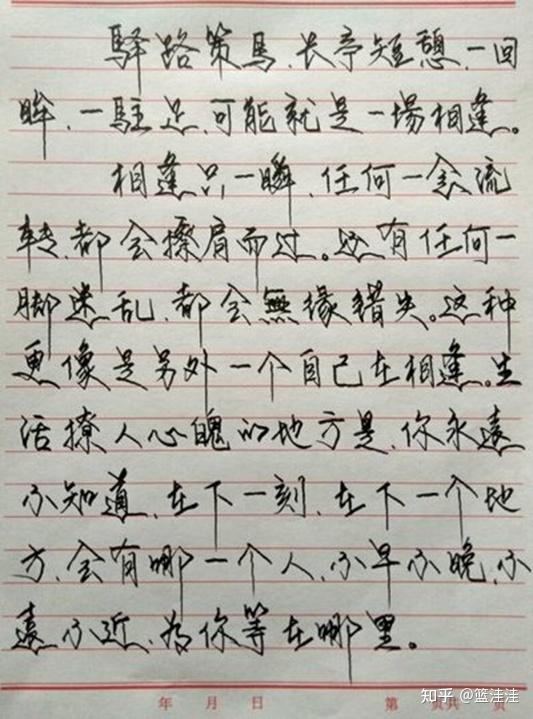 驿路策馬、长亭短憩、一回
眸、一駐足、可能就是一場相逢。
相逢只一瞬、任何一念流
转、都会擦肩而过。还有任何一
脚迷乱、都会無缘错失。这种
更像是另外一个自己在相逢。生
活撩人心魄的地方是、你永遠
不知道、在下一刻、在下一个地
方、会有哪一个人、不早不晚、不
遠不近、为你等在哪里。
年 月 日 第 页共 页
知乎 @篮洼洼